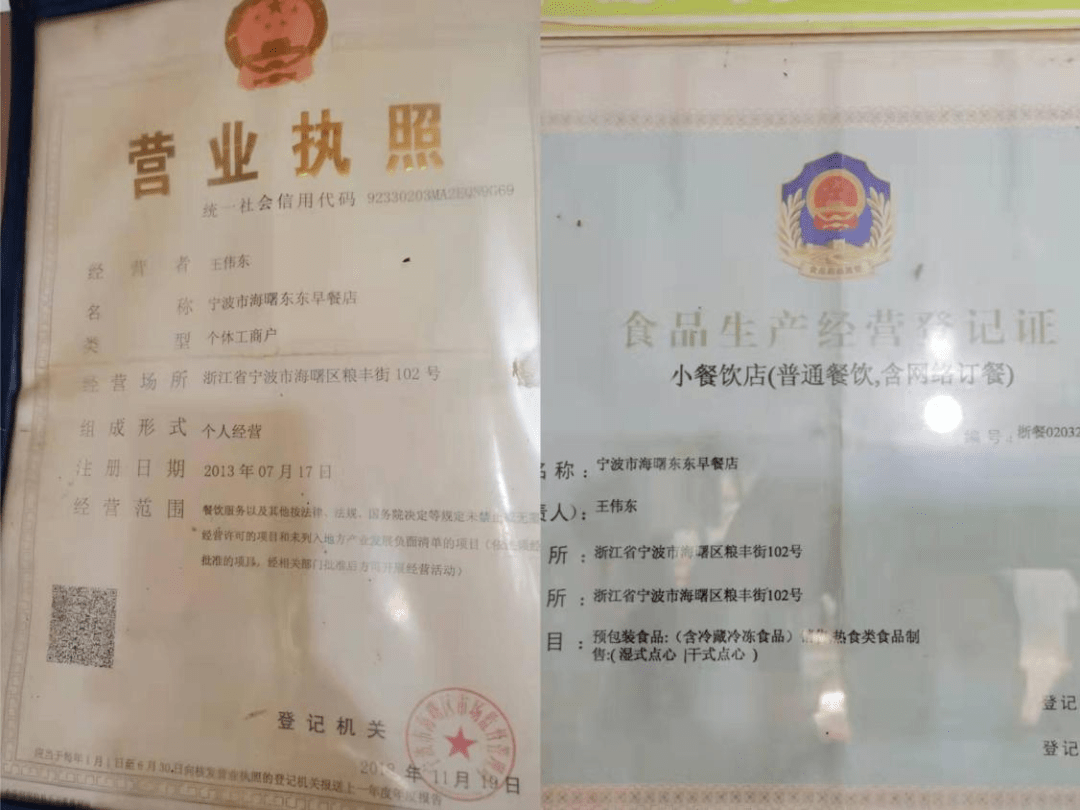 营业执照
统一社会信用代码 92330203MA2EQN9G69
经营者 王伟东
名称 宁波市海曙东东早餐店
类型 个体工商户
经营场所 浙江省宁波市海曙区粮丰街 102 号
组成形式 个人经营
注册日期 2013 年 07 月 17 日
经营范围 餐饮服务以及其他按法律、法规、国务院决定等规定未禁止或无需
经营许可的项目和未列入地方产业发展负面清单的项目（依法须经
批准的项目，经相关部门批准后方可开展经营活动）
登记机关
2019 年 11 月 19 日
应当于每年1月1日至6月30日向核发营业执照的登记机关报送上一年度年度报告
食品生产经营登记证
小餐饮店(普通餐饮,含网络订餐)
编号：浙餐02032
名称：宁波市海曙东东早餐店
责人)：王伟东
所：浙江省宁波市海曙区粮丰街102号
所：浙江省宁波市海曙区粮丰街102号
目：预包装食品:（含冷藏冷冻食品）销售,热食类食品制
售:( 湿式点心 |干式点心 )
登记
登记